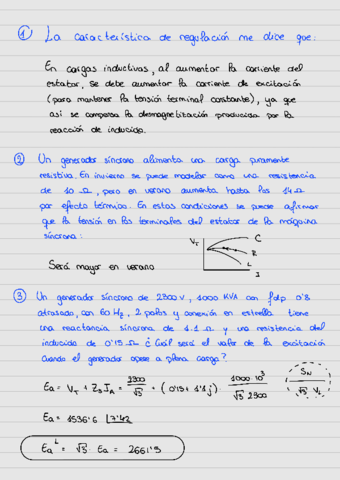 ① La característica de regulación me dice que:
En cargas inductivas, al aumentar la corriente del
estator, se debe aumentar la corriente de excitación
(para mantener la tensión terminal constante), ya que
así se compensa la desmagnetización producida por la
reacción de inducido.
② Un generador síncrono alimenta una carga puramente
resistiva. En invierno se puede modelar como una resistencia
de 10 Ω, pero en verano aumenta hasta los 14 Ω
por efecto térmico. En estas condiciones se puede afirmar
que la tensión en los terminales del estator de la máquina
síncrona:
V_T
C
R
L
I
Será mayor en verano
③ Un generador síncrono de 2300 V, 1000 KVA con fdp 0'8
atrasado, con 60 Hz, 2 polos y conexión en estrella tiene
una reactancia síncrona de 1.1 Ω y una resistencia del
inducido de 0'15 Ω ¿Cuál será el valor de la excitación
cuando el generador opere a plena carga?
Ea = V_T + Z_s I_A = 2300/√3 + (0'15 + 1'1j) · 1000·10³/√3·2300
S_N/√3 V_L
Ea = 1536'6 |7'42
Ea^L = √3 · Ea = 2661'5